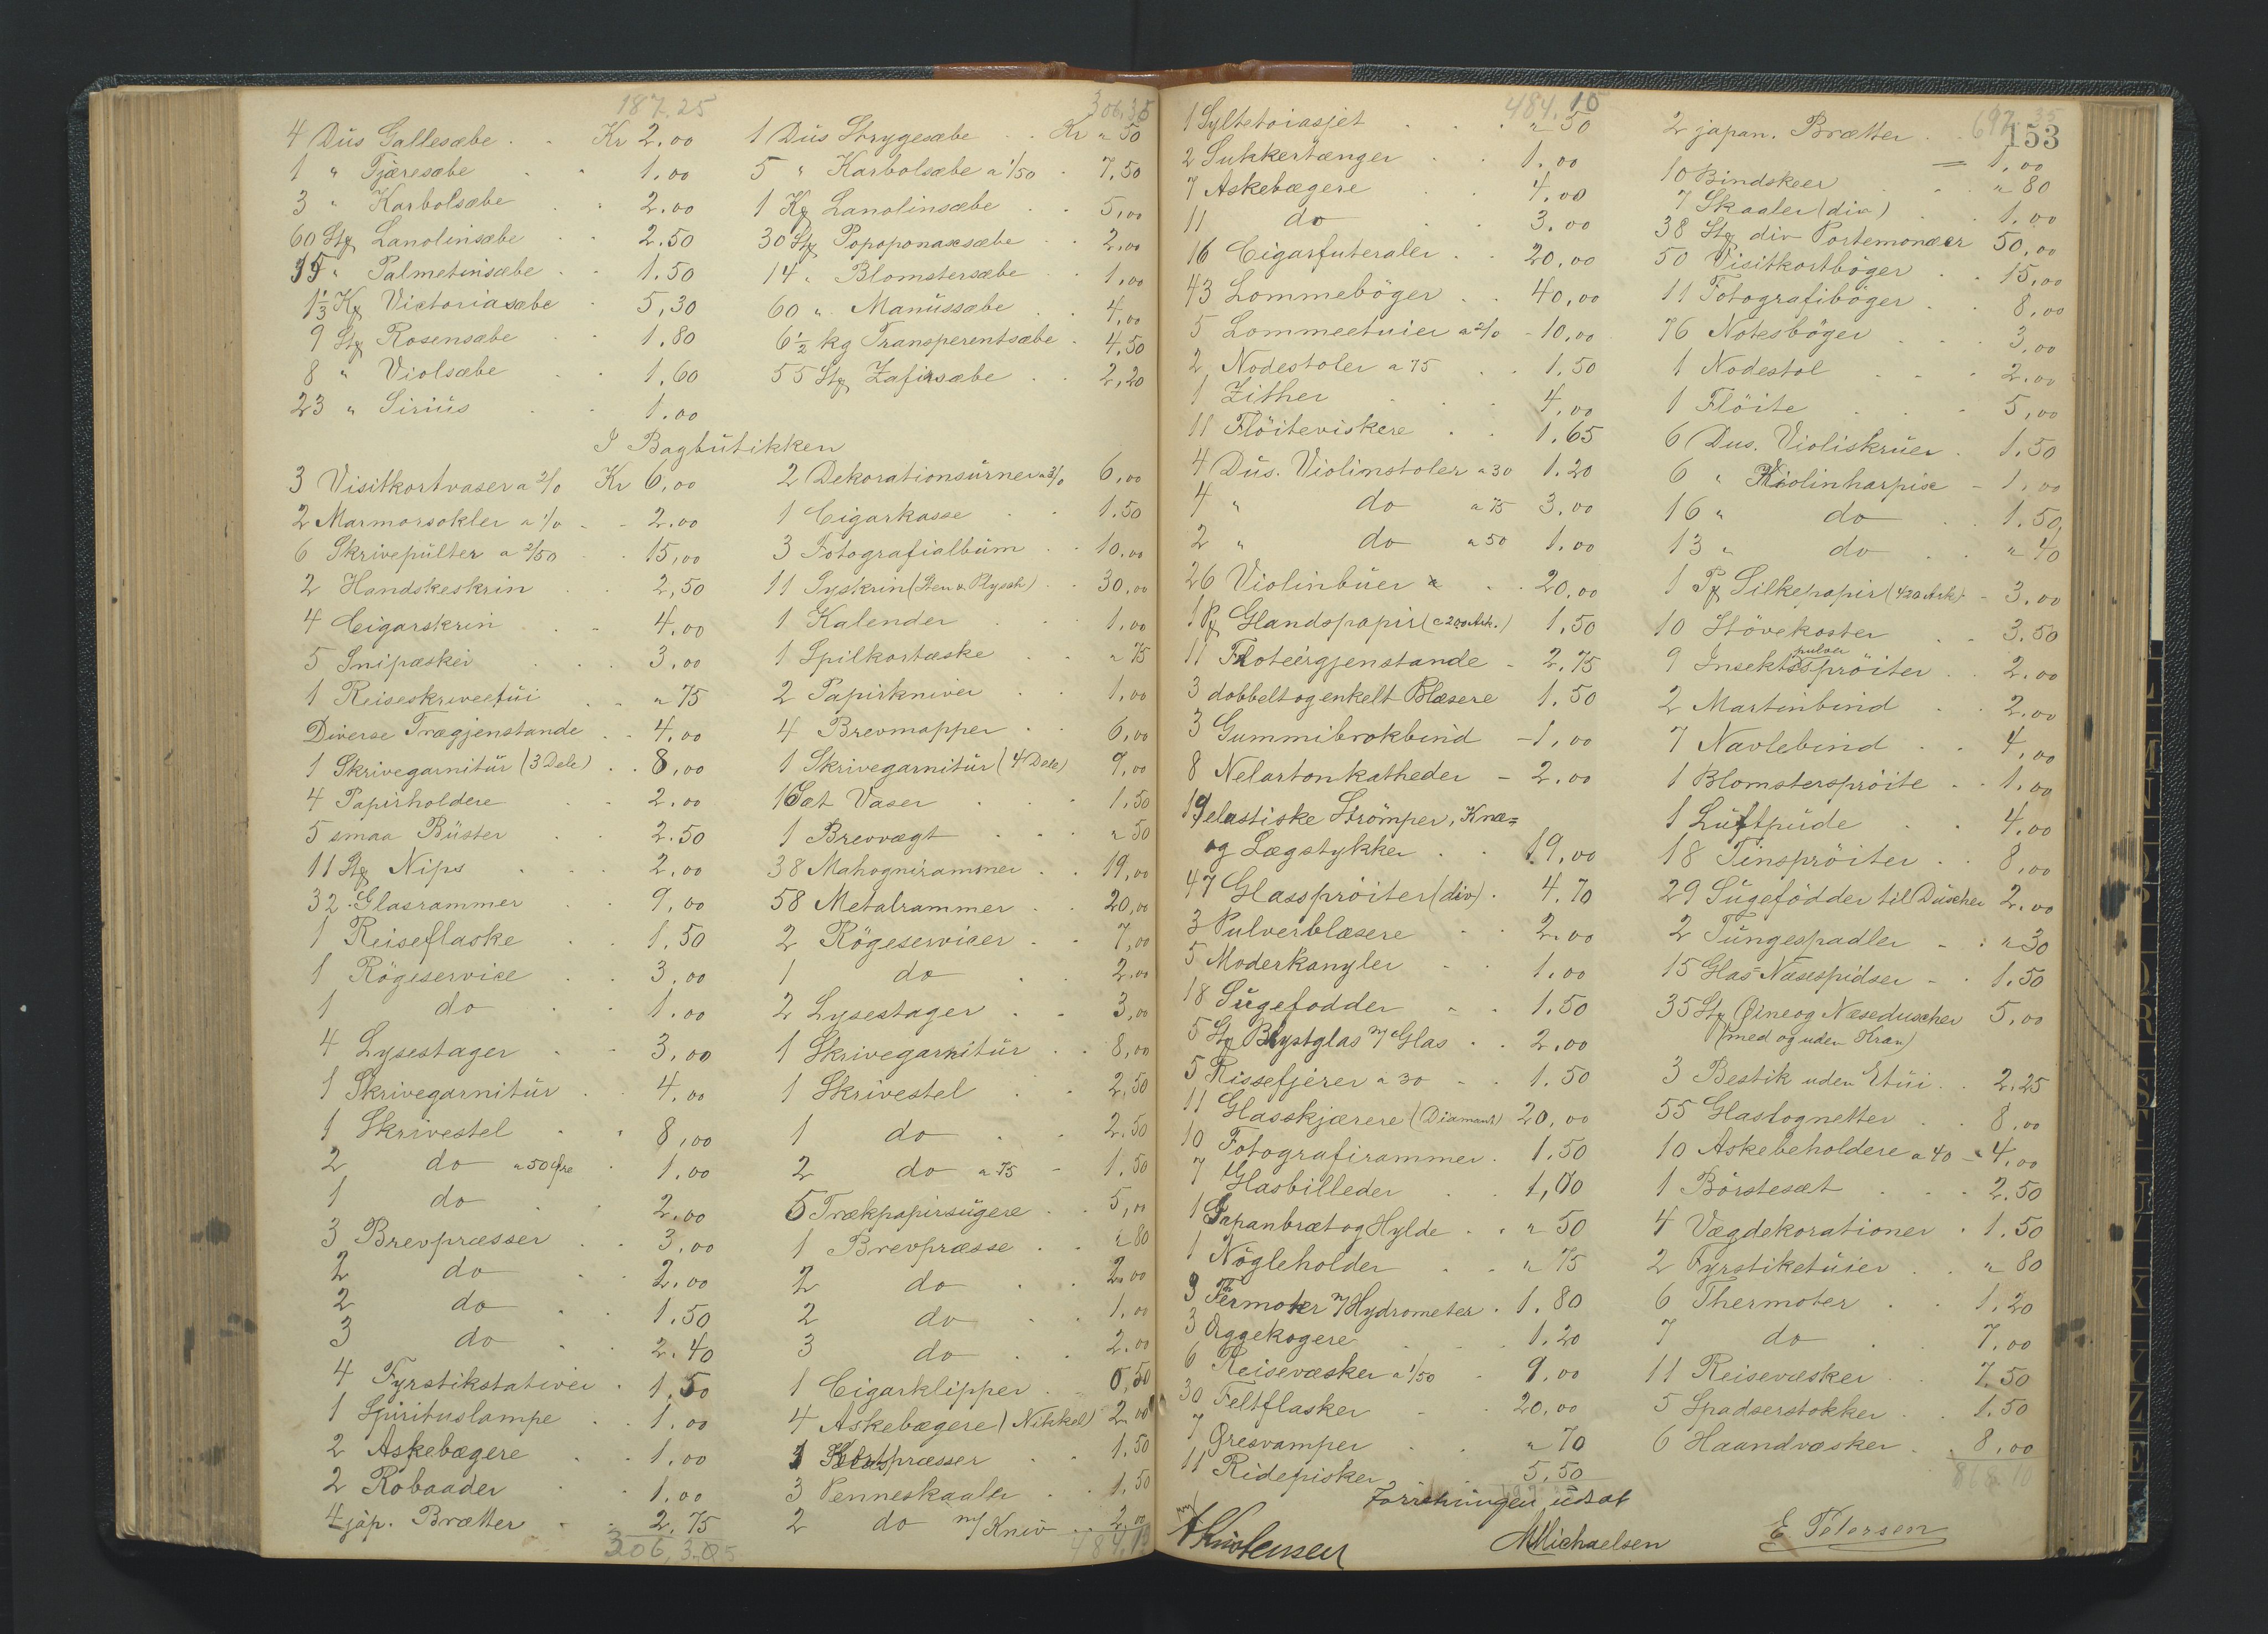 187.25
4 Dus Gallesæbe Kr 2.00
1 " Tjæresæbe 1.00
3 " Karbolsæbe 2.00
60 Stk Lanolinsæbe 2.50
15 " Palmetinsæbe 1.50
1⅓ Kg Victoriasæbe 5,30
9 Stk Rosensæbe 1.80
8 " Violsæbe 1,60
23 " Sirius 1.00
306,35
1 Dus Strygesæbe Kr " 50
5 " Karbolsæbe a 1/50 7,50
1 Kg Lanolinsæbe 5,00
30 Stk Popoponaxsæbe 2,00
14 " Blomstersæbe 1,00
60 " Manussæbe 4,00
6½ kg Transperentsæbe 4,50
55 Stk Zafirsæbe 2,20
I Bagbutikken
3 Visitkortvaser a 2/0 Kr 6,00
2 Marmorsokler a 1/0 2.00
6 Skrivepulter a 2/50 15,00
2 Handskeskrin 2,50
4 Cigarskrin 4.00
5 Snipæsker 3,00
1 Reiseskriveetui " 75
Diverse Trægjenstande 4,00
1 Skrivegarnitur (3 Dele) 8,00
4 Papirholdere 2.00
5 smaa Büster 2.50
11 Stk Nips 2,00
32 Glasrammer 9,00
1 Reiseflaske 1,50
1 Rögeservice 3,00
1 do 1.00
4 Lysestager 3,00
1 Skrivegarnitur 4.00
1 Skrivestel 8,00
2 do a 50 Øre 1.00
1 do 2.00
3 Brevpræsser 3,00
2 do 2.00
2 do 1.50
3 do 2.40
4 Fyrstikstativer 1,50
1 Spirituslampe 1.00
2 Askebægere 1,00
2 Robaader 1.00
4 jap. Brætter 2.75
306,35
2 Dekorationsurner a 3/0 6,00
1 Cigarkasse 1.50
3 Fotografialbum 10,00
11 Syskrin (Sten & Plysch) 30,00
1 Kalender 1,00
1 Spilkortæske " 75
2 Papirkniver 1,00
4 Brevmapper 6,00
1 Skrivegarnitur (4 Dele) 9,00
1 Sæt Vaser 1.50
1 Brevvægt " 50
38 Mahognirammer 19,00
58 Metalrammer 20,00
2 Rögeservicer 7,00
1 do 2.00
2 Lysestager 3,00
1 Skrivegarnitur 8,00
1 Skrivestel 2,50
1 do 2,50
2 do a 75 1.50
5 Trækpapirsugere 5,00
1 Brevpræsse " 80
2 do 2,00
2 do 1.00
3 do 2.00
1 Cigarklipper 0,50
4 Askebægere (Nikkel) 2.00
præsser 1.50
3 Penneskaaler 1.50
2 do m/ Kniv 2.00
484,10
484,10
1 Syltetöiasjet " 50
2 Sukkertænger 1.00
7 Askebægere 4,00
11 do 3.00
16 Cigarfuteraler 20,00
43 Lommebøger 40,00
5 Lommeetuier a 2/0 10,00
2 Nodestoler a 75 1.50
1 Zither 4,00
11 Flöiteviskere 1.65
4 Dus. Violinstoler a 30 1.20
4 " do a 75 3.00
2 " do a 50 1.00
26 Violinbuer 20,00
1 Pk Glandspapir (c 200 Ark.) 1,50
11 Frotéirgjenstande 2.75
3 dobbelt og enkelt Blæsere 1.50
3 Gummibrokbind 1,00
8 Nelartonkatheder 2.00
19 elastiske Strömper, Knæ=
og Lægstykker 19,00
47 Glasspröiter (div) 4.70
3 Pulverblæsere 2.00
5 Moderkangler 1.00
18 Sugefodder 1.50
5 Stk Brystglas m/ Glas 2.00
5 Rissefjærer a 30 1.50
11 Glasskjærere (Diamant) 20,00
10 Fotografirammer 1.50
7 Glasbilleder 1,00
1 Japanbræt og Hylde " 50
1 Nögleholder " 75
Termoter m/ Hydrometer 1.80
3 Æggekogere 1.20
6 Reisevæsker a 1/50 9.00
30 Feltflasker 20,00
7 Øresvamper " 70
11 Ridepisker 5.50
697.35
153
2 japan. Brætter 1,00
10 Bindskeer " 80
7 Skaaler (div) 1.00
38 Stk div Portemonæer 50,00
50 Visitkortbøger 15,00
11 Fotografibøger 8,00
76 Notesbøger 3,00
1 Nodestol 2.00
1 Flöite 5,00
6 Dus. Violiskruer 1.50
6 " Violinharpix 1,00
16 " do 1.50
13 " do " 40
1 Pk Silkepapir (420 Ark) 3.00
10 Stövekoster 3.50
pulver
9 Insektspröiter 2.00
2 Martinbind 2.00
7 Navlebind 4,00
1 Blomsterspröite 1.00
1 Luftpude 4,00
18 Tinspröiter 8,00
29 Sugefödder til Duscher 2.00
2 Tungespadler " 30
15 Glas-Næsespidser 1.50
35 Stk Øine og Næseduscher 5,00
(med og uden Kran)
3 Bestik uden Etui 2.25
55 Glaslognetter 8,00
10 Askebeholdere a 40 4,00
1 Börstesæt 2.50
4 Vægdekorationer 1.50
2 Fyrstiketuier " 80
6 Thermoter 1.20
7 do 7.00
11 Reisevæsker 7.50
5 Spadserstokker 1.50
6 Haandvæsker 8,00
Forretningen udsat
A Kristensen
M Michaelsen
E Petersen